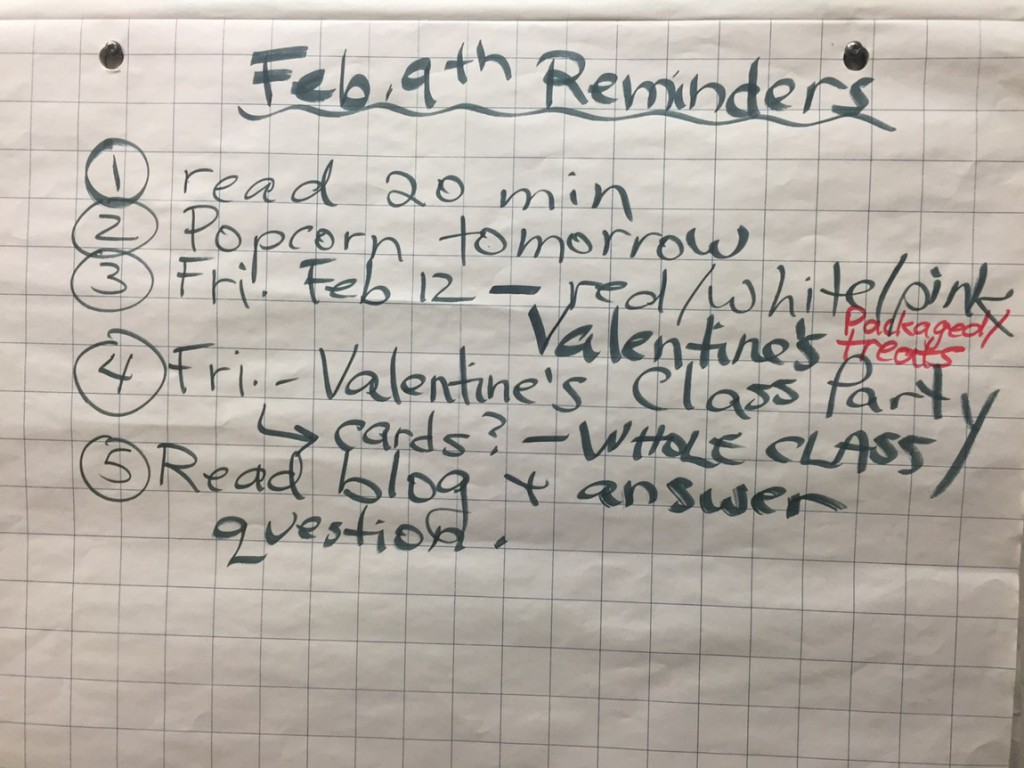 Feb. 9th Reminders
① read 20 min
② Popcorn tomorrow
③ Fri. Feb 12 — red/white/pink
Valentine's Packaged
treats
④ Fri. - Valentine's Class Party
↳ cards? - WHOLE CLASS
⑤ Read blog + answer
question.